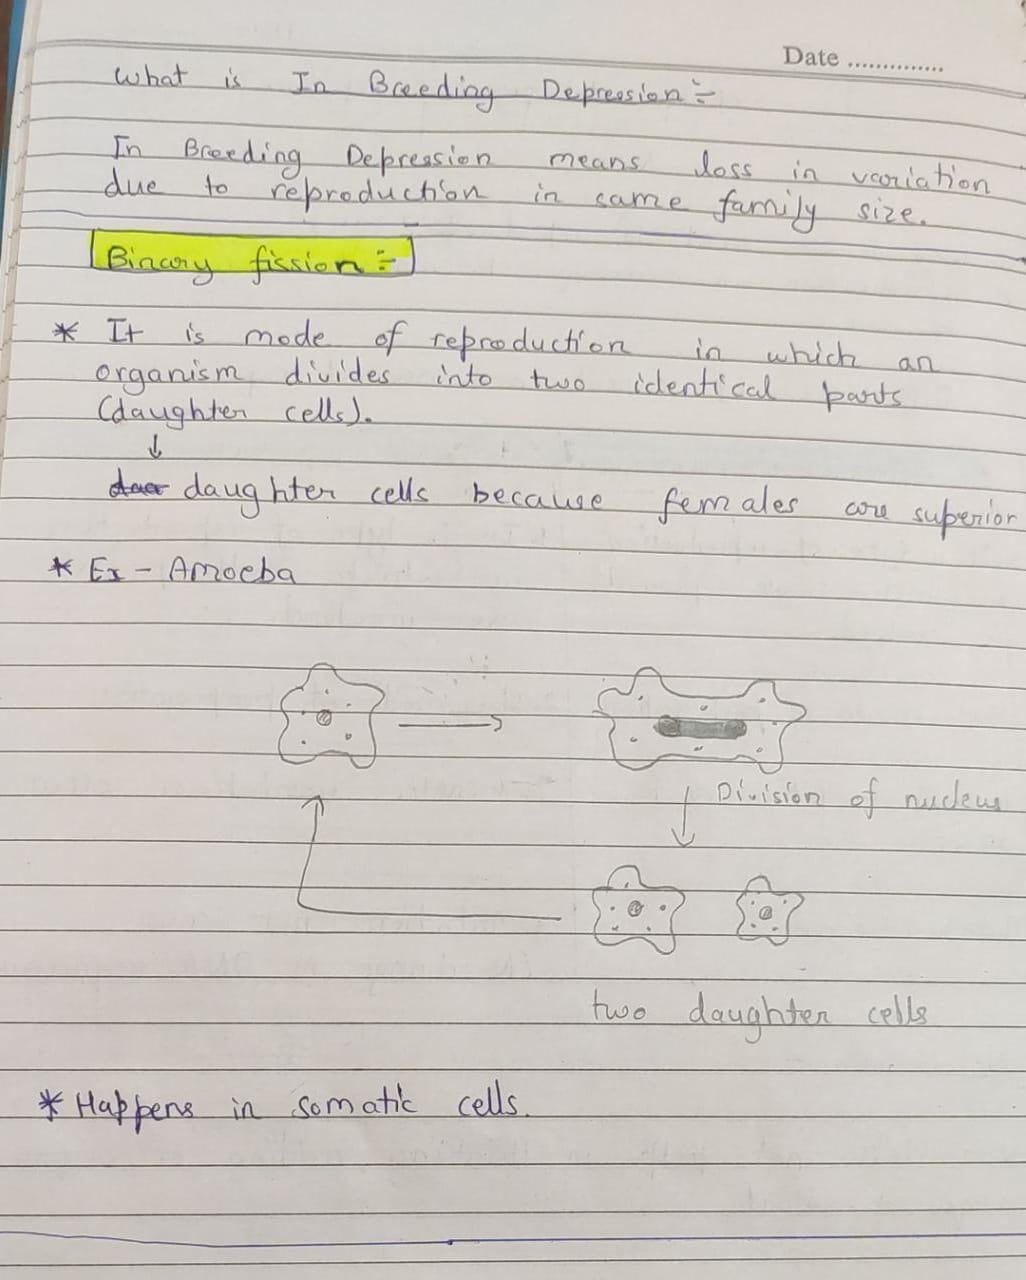 Date ..............
What is In Breeding Depression :-
In Breeding Depression means loss in variation
due to reproduction in same family size.
Binary fission :-
* It is mode of reproduction in which an
organism divides into two identical parts
(daughter cells).
↓
daughter cells because females are superior
* Ex - Amoeba
Division of nucleus
two daughter cells
* Happens in somatic cells.